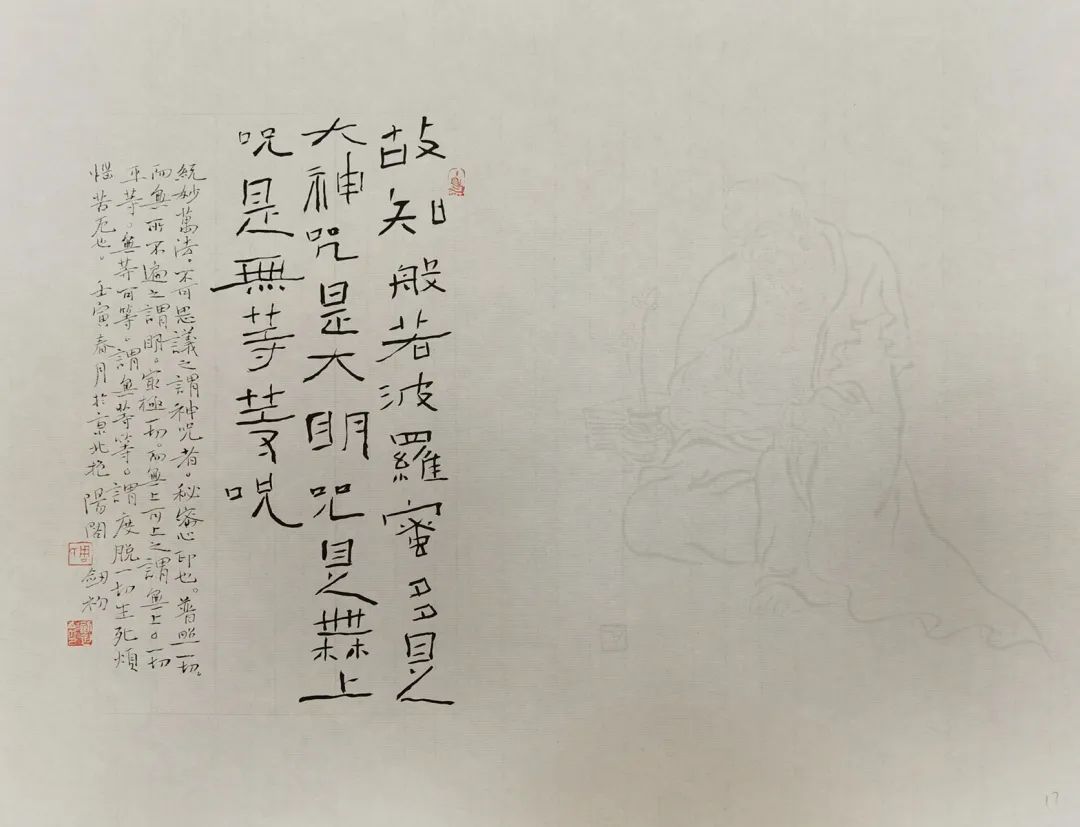 故知般若波羅蜜多是
大神咒是大明咒是無上
呪是無等等呪
統妙萬法。不可思議之謂神咒者。秘密心印也。普照一切。
而無所不遍之謂明。最極一切。而無上可上之謂無上。一切
平等。無等可等。謂無等等。謂度脫一切生死煩
惱苦厄也。壬寅春月於京北抱陽閣
劒初
17